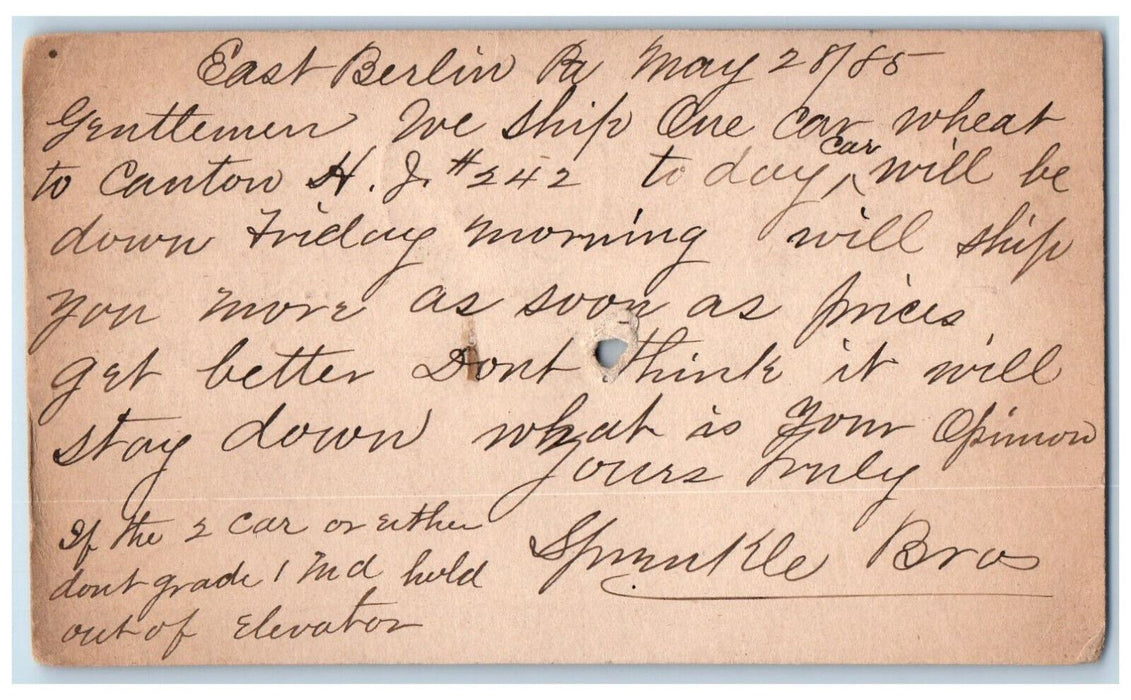 East Berlin Pa May 28/85
Gentlemen We ship One Car wheat
to Canton H. J. #242 to day, car will be
down Friday morning will ship
you more as soon as prices
get better Dont think it will
stay down what is your Opinion
yours truly
Sprenkle Bros
If the 2 car or either
dont grade 1 Md hold
out of Elevator